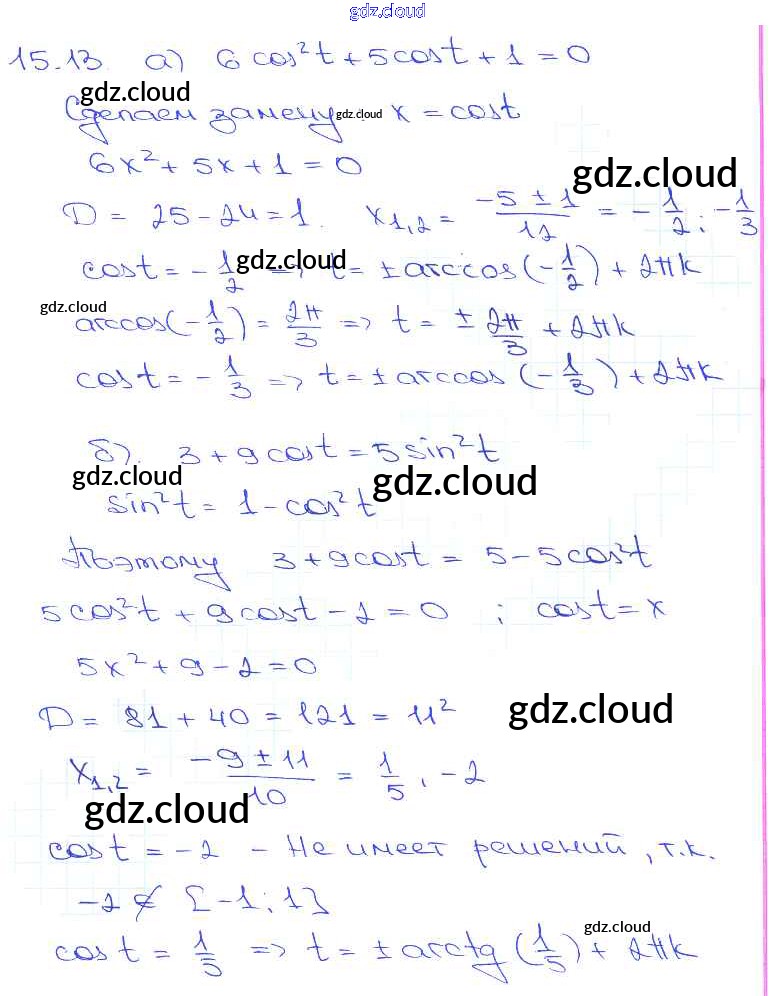 gdz.cloud
15.13. а) 6 cos²t + 5 cos t + 1 = 0
gdz.cloud
Сделаем замену gdz.cloud x = cos t
6x² + 5x + 1 = 0
gdz.cloud
D = 25 - 24 = 1. x₁,₂ = (-5 ± 1)/12 = -1/2; -1/3
cos t = -1/2 gdz.cloud => t = ± arccos(-1/2) + 2πk
gdz.cloud
arccos(-1/2) = 2π/3 => t = ± 2π/3 + 2πk
cos t = -1/3 => t = ± arccos(-1/3) + 2πk
б). 3 + 9 cos t = 5 sin²t
gdz.cloud gdz.cloud
sin²t = 1 - cos²t
Поэтому 3 + 9 cos t = 5 - 5 cos²t
5 cos²t + 9 cos t - 2 = 0 ; cos t = x
5x² + 9 - 2 = 0
D = 81 + 40 = 121 = 11² gdz.cloud
x₁,₂ = (-9 ± 11)/10 = 1/5, -2
gdz.cloud
cos t = -2 - Не имеет решений, т.к.
-2 ∉ [-1; 1]
gdz.cloud
cos t = 1/5 => t = ± arctg(1/5) + 2πk